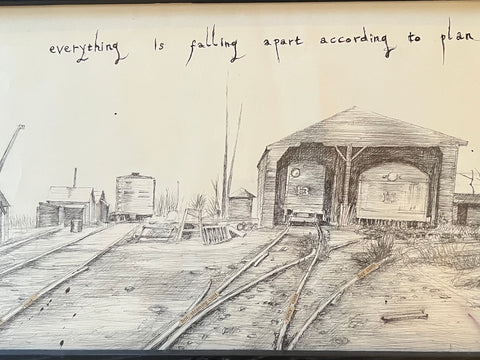 everything is falling apart according to plan